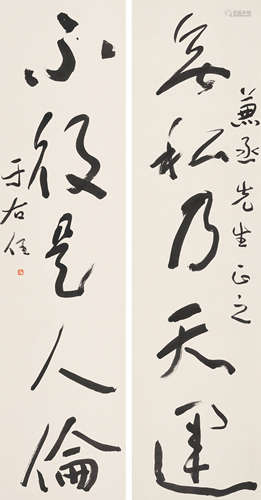 無私乃天運
兼丞先生正之
不役是人倫
于右任